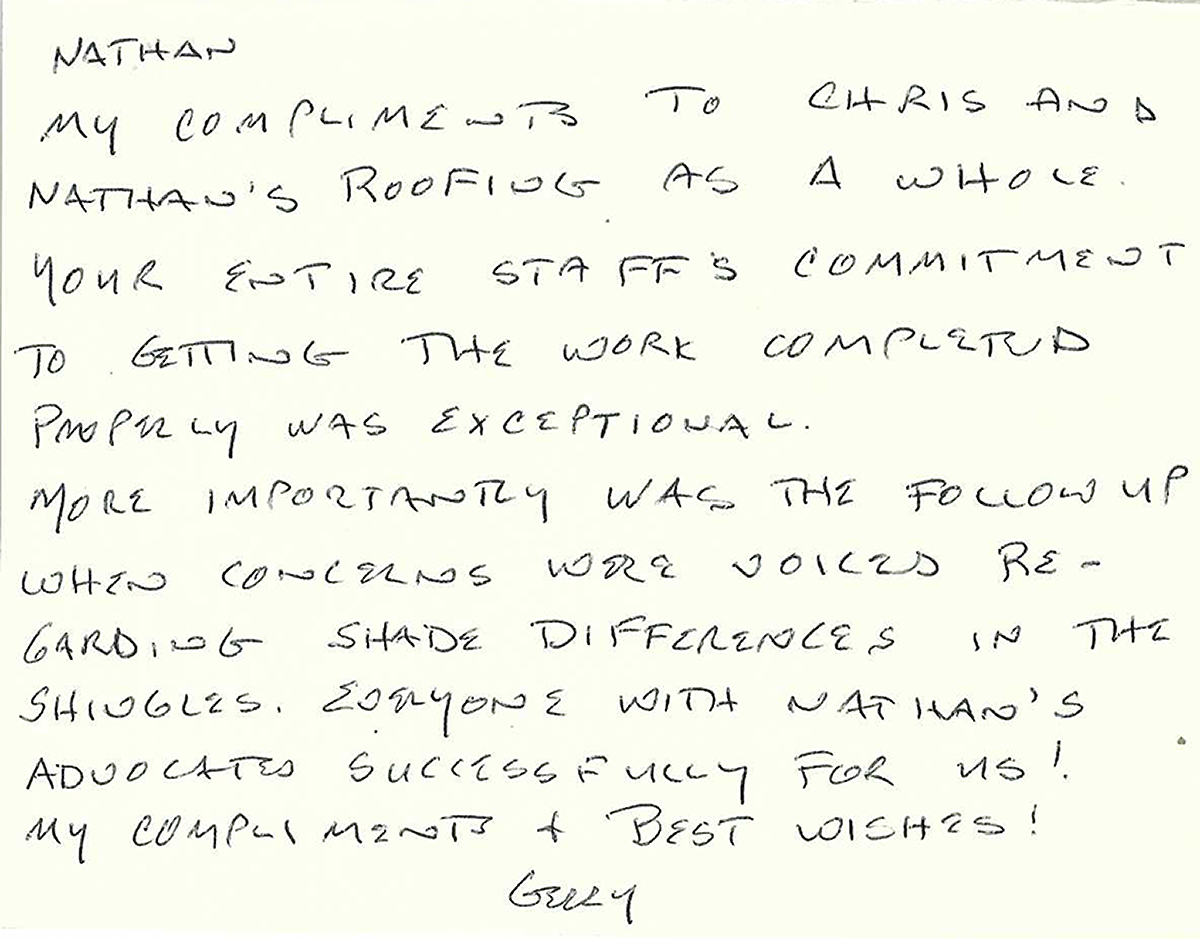 NATHAN
MY COMPLIMENTS TO CHRIS AND
NATHAN'S ROOFING AS A WHOLE.
YOUR ENTIRE STAFF'S COMMITMENT
TO GETTING THE WORK COMPLETED
PROPERLY WAS EXCEPTIONAL.
MORE IMPORTANTLY WAS THE FOLLOW UP
WHEN CONCERNS WERE VOICED RE-
GARDING SHADE DIFFERENCES IN THE
SHINGLES. EVERYONE WITH NATHAN'S
ADVOCATED SUCCESSFULLY FOR US!
MY COMPLIMENTS + BEST WISHES!
GERRY